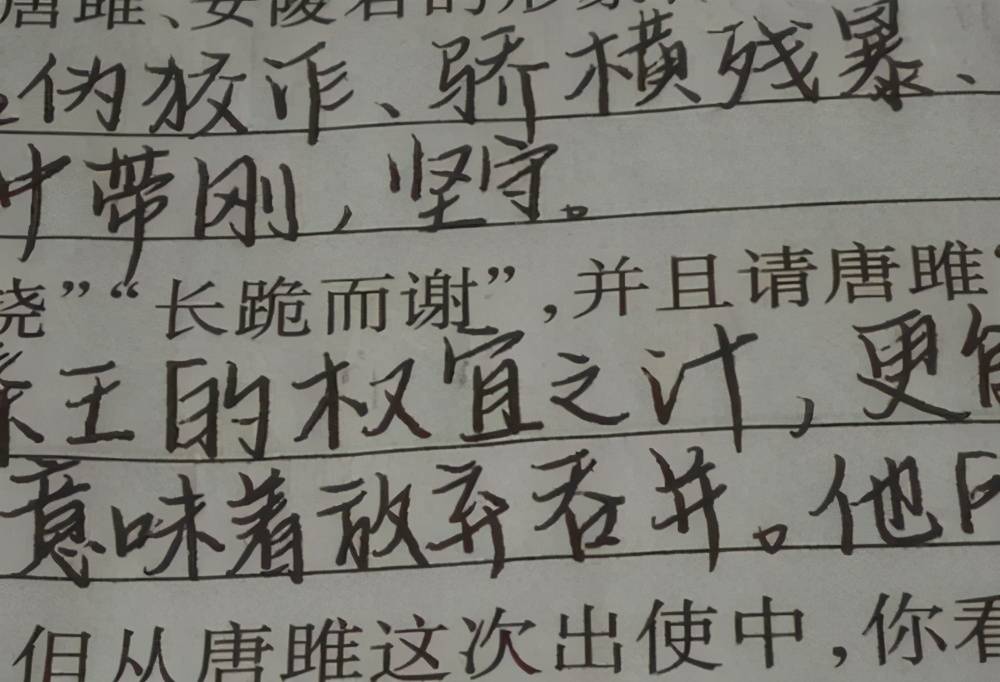 唐雎、安陵君的形象
伪狡诈、骄横残暴、
中带刚，坚守。
挠”“长跪而谢”，并且请唐雎“
秦王的权宜之计，更能
意味着放弃吞并。他
但从唐雎这次出使中，你看